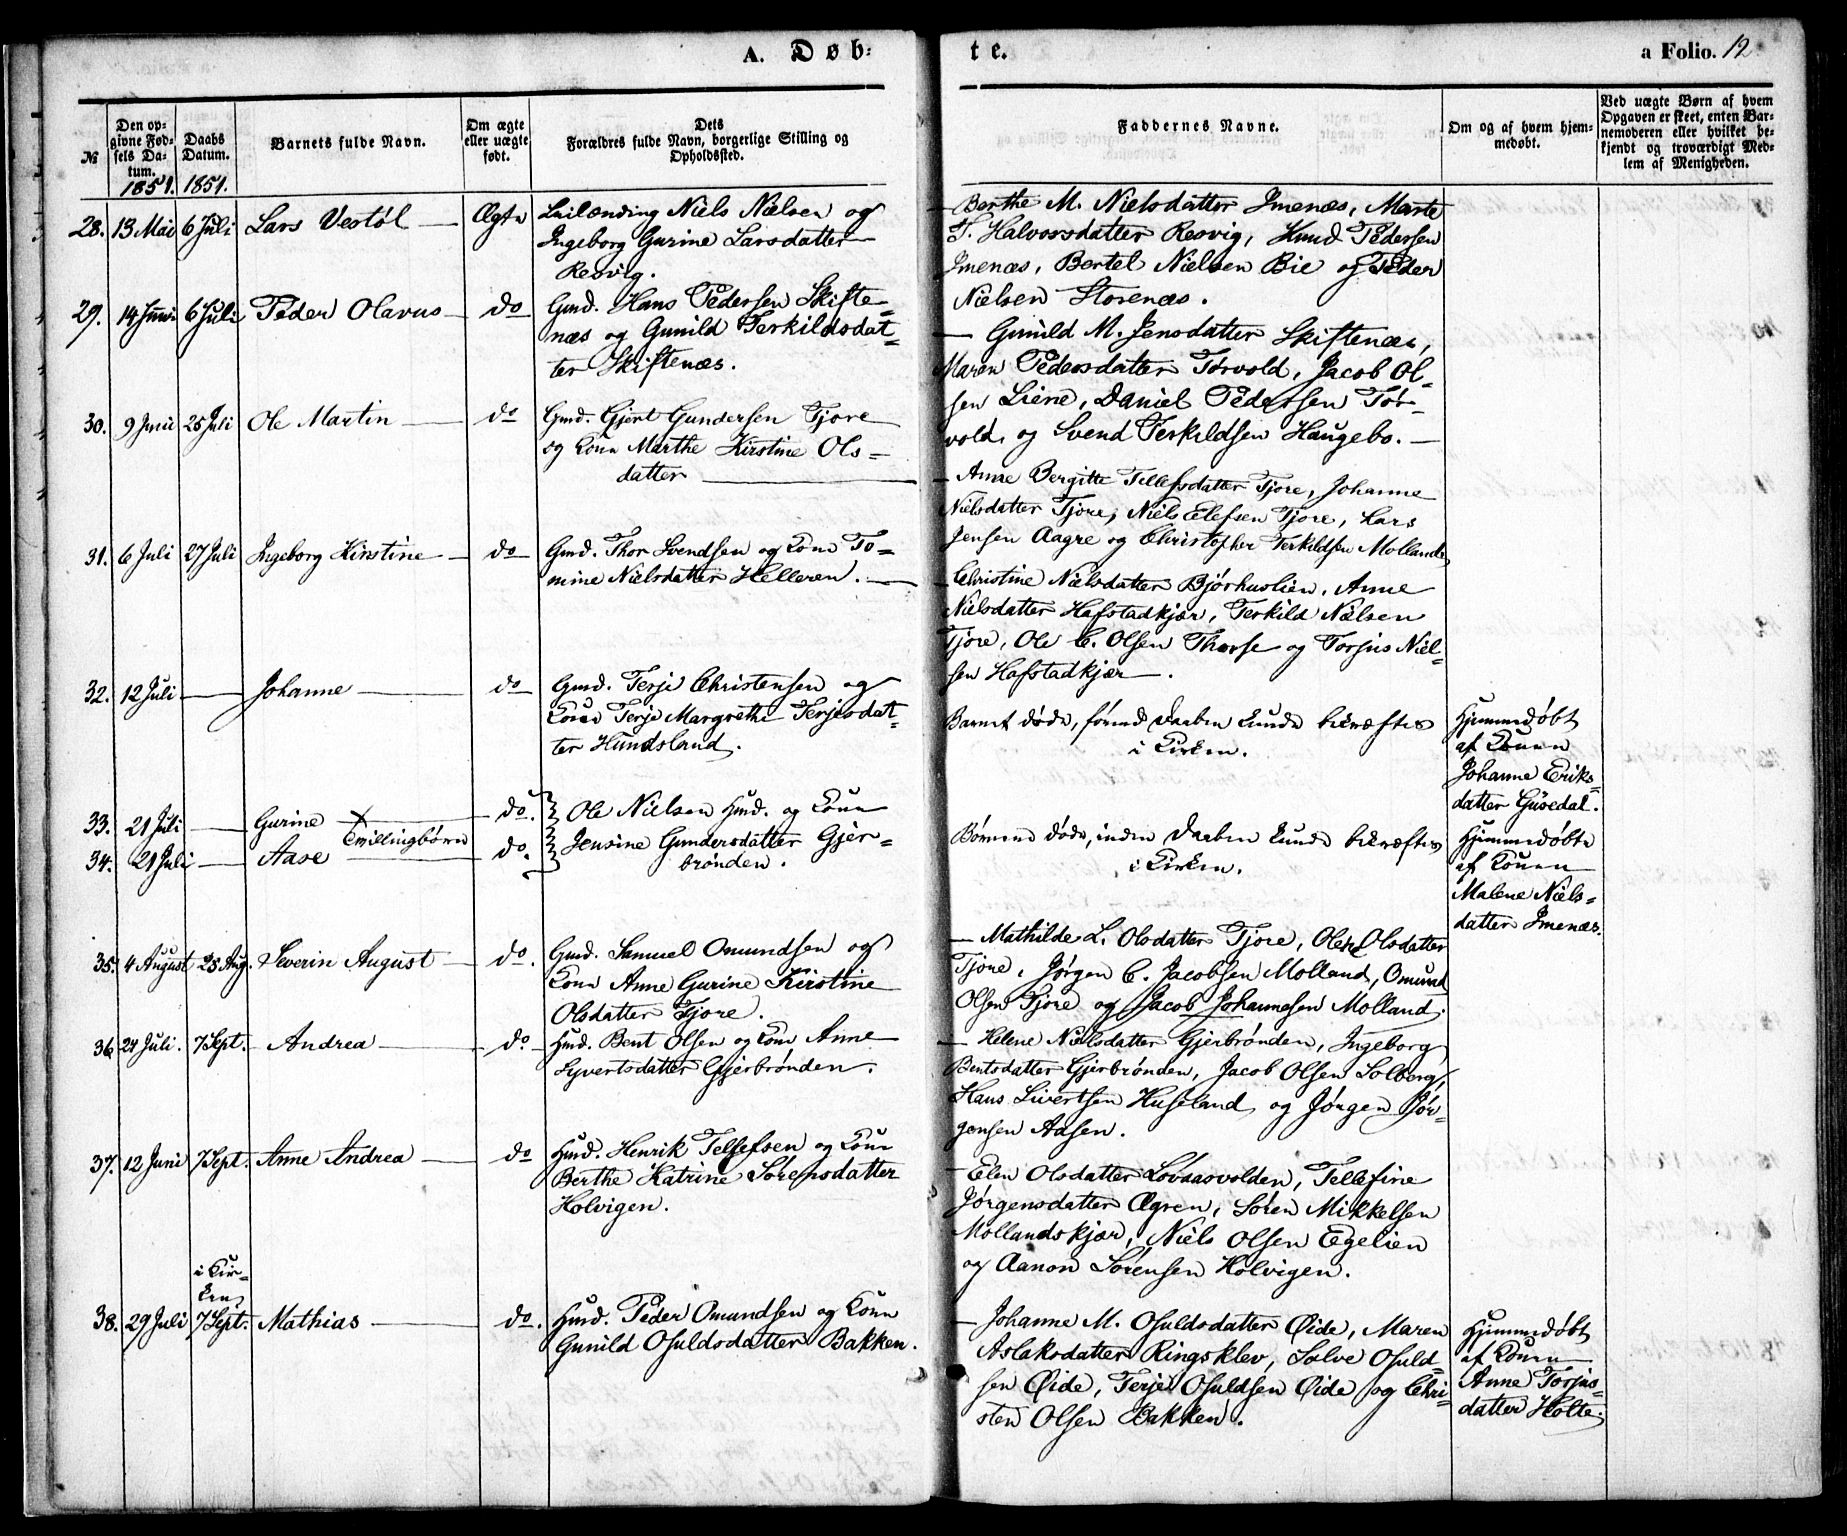 A. Døb-
te.
a Folio. 12
№
Den op-
givne Fød-
sels Da-
tum.
1851.
Daabs
Datum.
1851.
Barnets fulde Navn.
Om ægte
eller uægte
født.
Dets
Forældres fulde Navn, borgerlige Stilling og
Opholdssted.
Faddernes Navne.
Om og af hvem hjem-
medøbt.
Ved uægte Børn af hvem
Opgaven er skeet, enten Bar-
nemoderen eller hvilket be-
kjendt og troværdigt Med-
lem af Menigheden.
28. 13 Mai 6 Juli Lars Vestøl Ægte Leilænding Niels Nielsen og
Ingeborg Gurine Larsdatter
Resvig.
Berthe M. Nielsdatter Imenæs, Marte
T. Halvorsdatter Resvig, Knud Pedersen
Imenæs, Bertel Nielsen Bie og Peder
Nielsen Storenæs.
29. 14 Juni 6 Juli Peder Olavus do Gmd. Hans Pedersen Skifte-
næs og Gunild Terkildsdat-
ter Skiftenæs.
Gunild M. Jensdatter Skiftenæs,
Maren Pedersdatter Tørvold, Jacob Ol-
sen Liene, Daniel Pedersen Tør-
vold, og Svend Terkildsen Haugebo.
30. 9 Juni 25 Juli Ole Martin do Gmd. Gjert Gundersen Tjore
og Kone Marthe Kirstine Ols-
datter
Anne Bergitte Tellefsdatter Tjore, Johanne
Nielsdatter Tjore, Niels Elefsen Tjore, Lars
Jensen Aagre og Christopher Terkildsen Molland
31. 6 Juli 27 Juli Ingeborg Kirstine do Gmd. Thor Svendsen og Kone To-
mine Nielsdatter Helleren.
Christine Nielsdatter Bjørhuslien, Anne
Nielsdatter Hafstadkjær, Terkild Nielsen
Tjore, Ole C. Olsen Thorse og Torjus Niel-
sen Hafstadkjær.
32. 12 Juli Johanne do Gmd. Terje Christensen og
Kone Terje Margrethe Terjesdat-
ter Hundsland.
Barnet døde, førend Daaben kunde bekræftes
i Kirken.
Hjemmedøbt
af Konen
Johanne Eriks-
datter Gusedal.
33. 21 Juli Gurine do.
Tvillingbørn
34. 21 Juli Aase do.
Ole Nielsen Hmd. og Kone
Jensine Gundersdatter Gjer-
brønden.
Børnene døde, inden Daaben kunde bekræftes
i Kirken.
Hjemmedøbte
af Konen
Malene Niels-
datter Imenæs.
35. 4 August 25 Aug. Severin August do. Gmd. Samuel Omundsen og
Kone Anne Gurine Kirstine
Olsdatter Tjore.
Mathilde L. Olsdatter Tjore, Olsdatter
Tjore, Jørgen C. Jacobsen Molland, Omund
Olsen Tjore og Jacob Johannesen Molland.
36 24 Juli. 7 Sept. Andrea do. Hmd. Bent Olsen og Kone Anne
Syvertsdatter Gjerbrønden.
Helene Nielsdatter Gjerbrønden, Ingeborg
Bentsdatter Gjerbrønden, Jacob Olsen Solberg,
Hans Sivertsen Huseland og Jørgen Jør-
gensen Aasen.
37. 12 Juni 7 Sept. Anne Andrea do Hmd. Henrik Tellefsen og Kone
Berthe Katrine Sørensdatter
Holvigen.
Elen Olsdatter Løvaasvolden, Tellefine
Jørgensdatter Øgren, Søren Mikkelsen
Mollandskjær, Niels Olsen Egelien
og Aanon Sørensen Holvigen.
i Kir-
ken
38. 29 Juli 7 Sept. Mathias do. Hmd. Peder Omundsen og Kone
Gunild Osuldsdatter Bakken.
Johanne M. Osuldsdatter Øide, Maren
Aslaksdatter Ringsklev, Salve Osuld-
sen Øide, Terje Osuldsen Øide og Chri-
sten Olsen Bakken.
Hjemmedøbt
af Konen
Anne Torjus-
datter Holte.